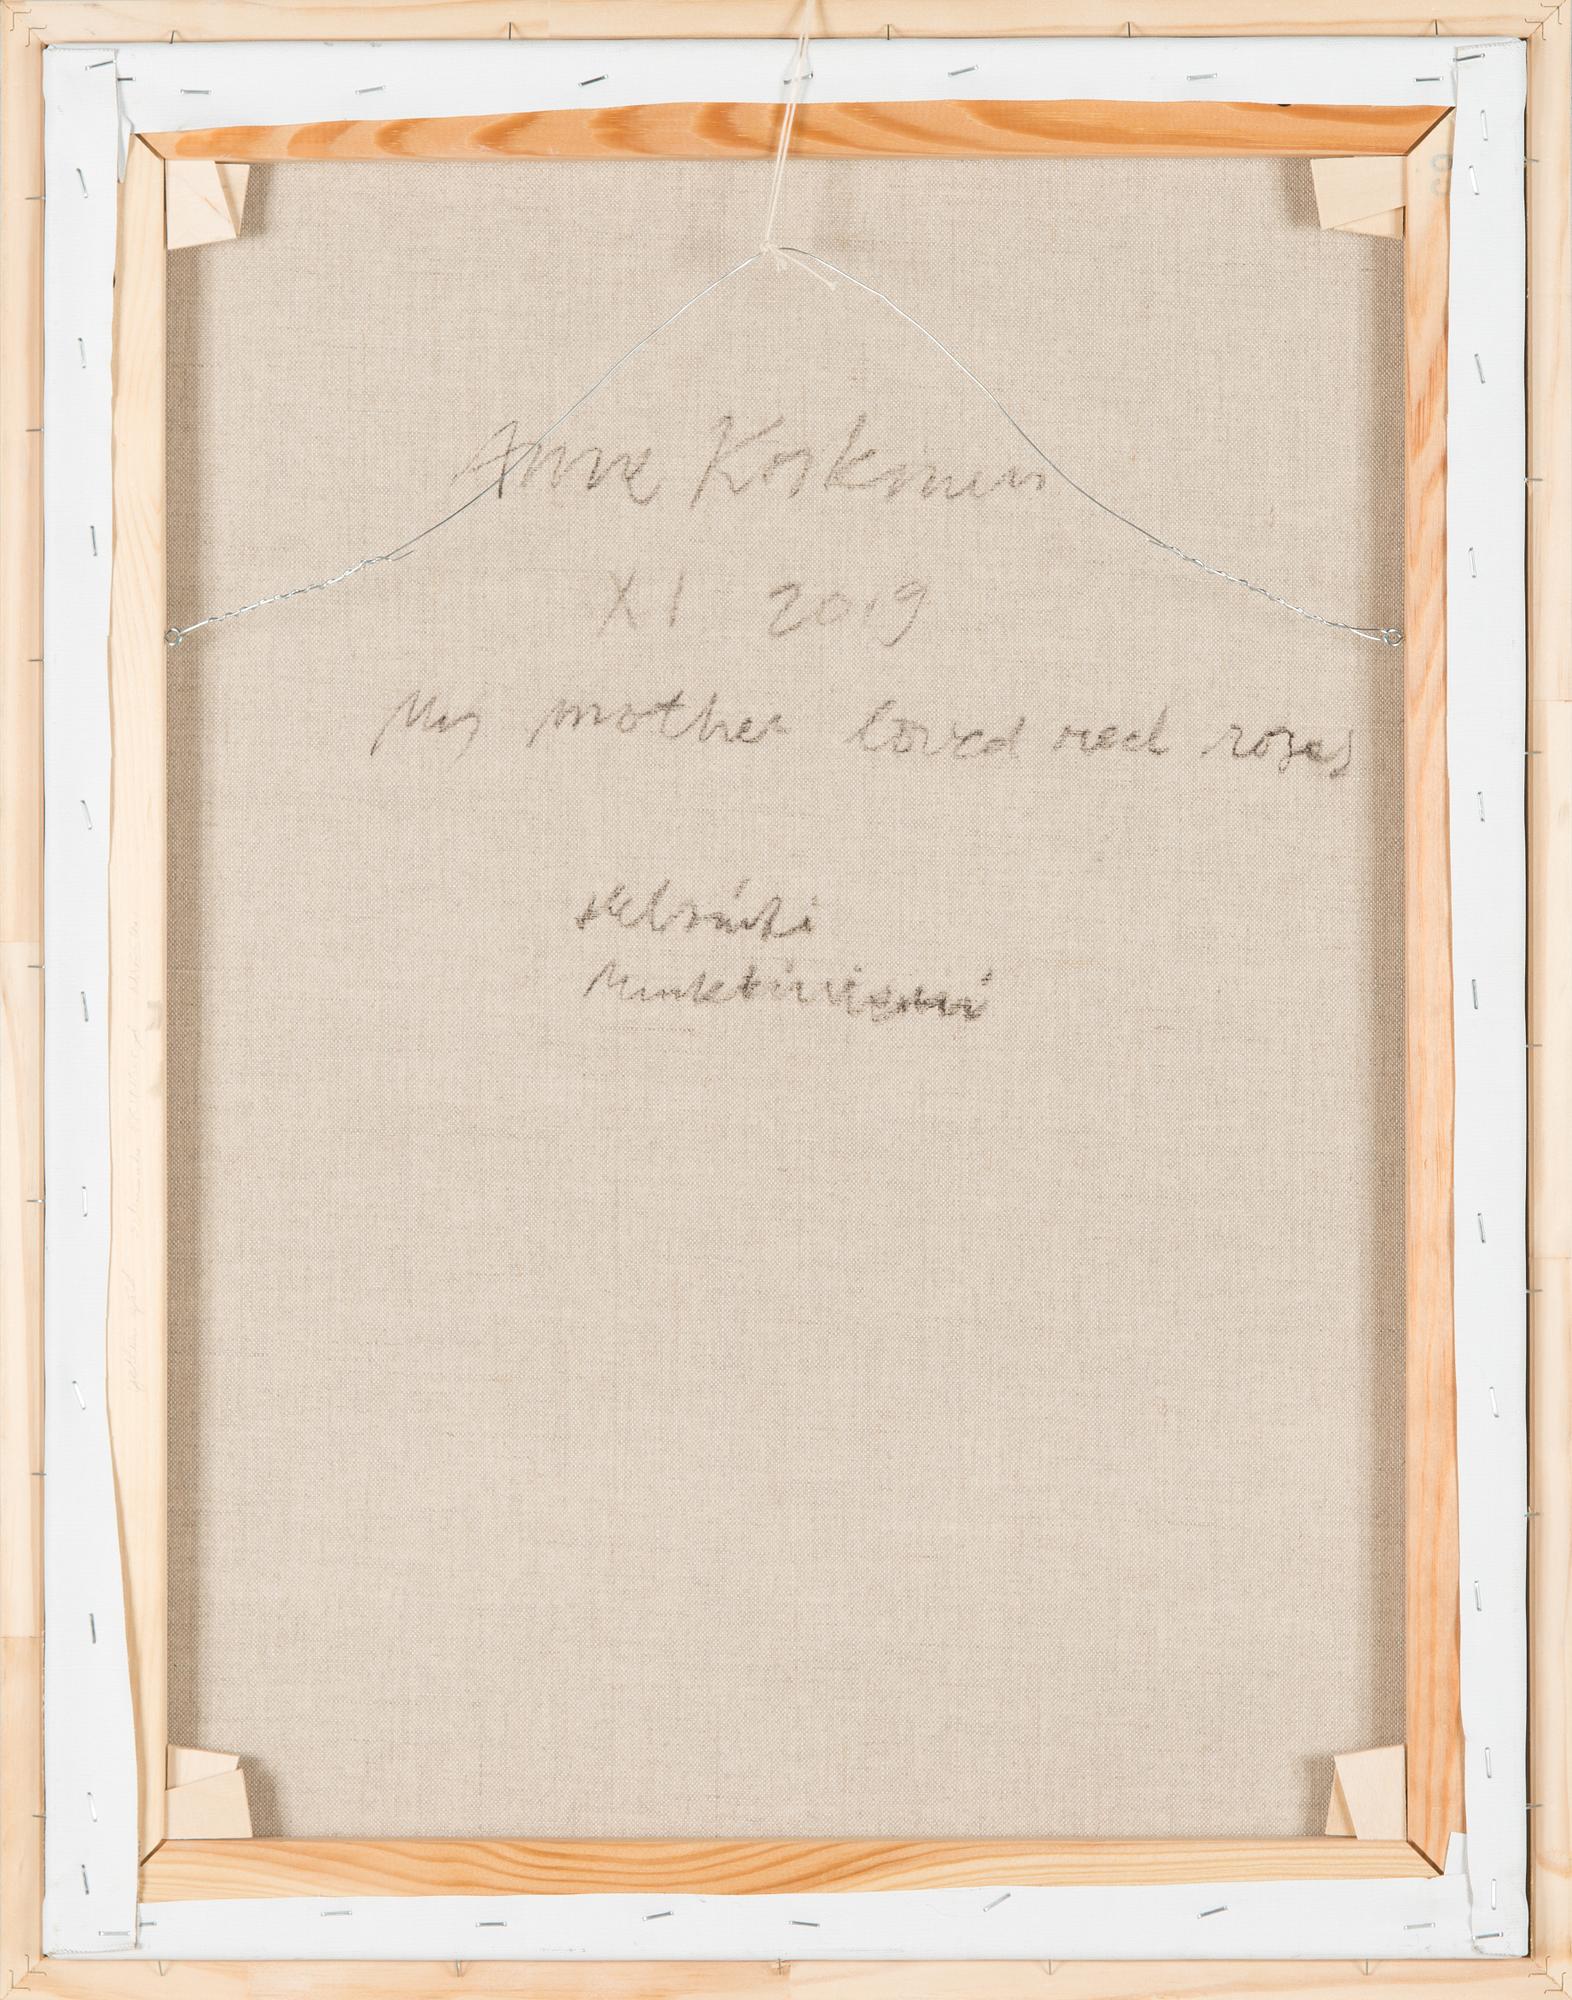 Anne Koskinen
XI 2019
My mother loved red roses
Helsinki
Munkkiniemi